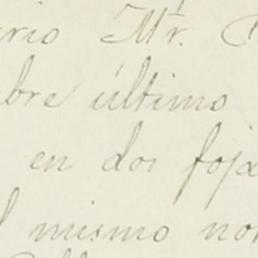 erio Mr.
bre último
en dos foja
l mismo nom